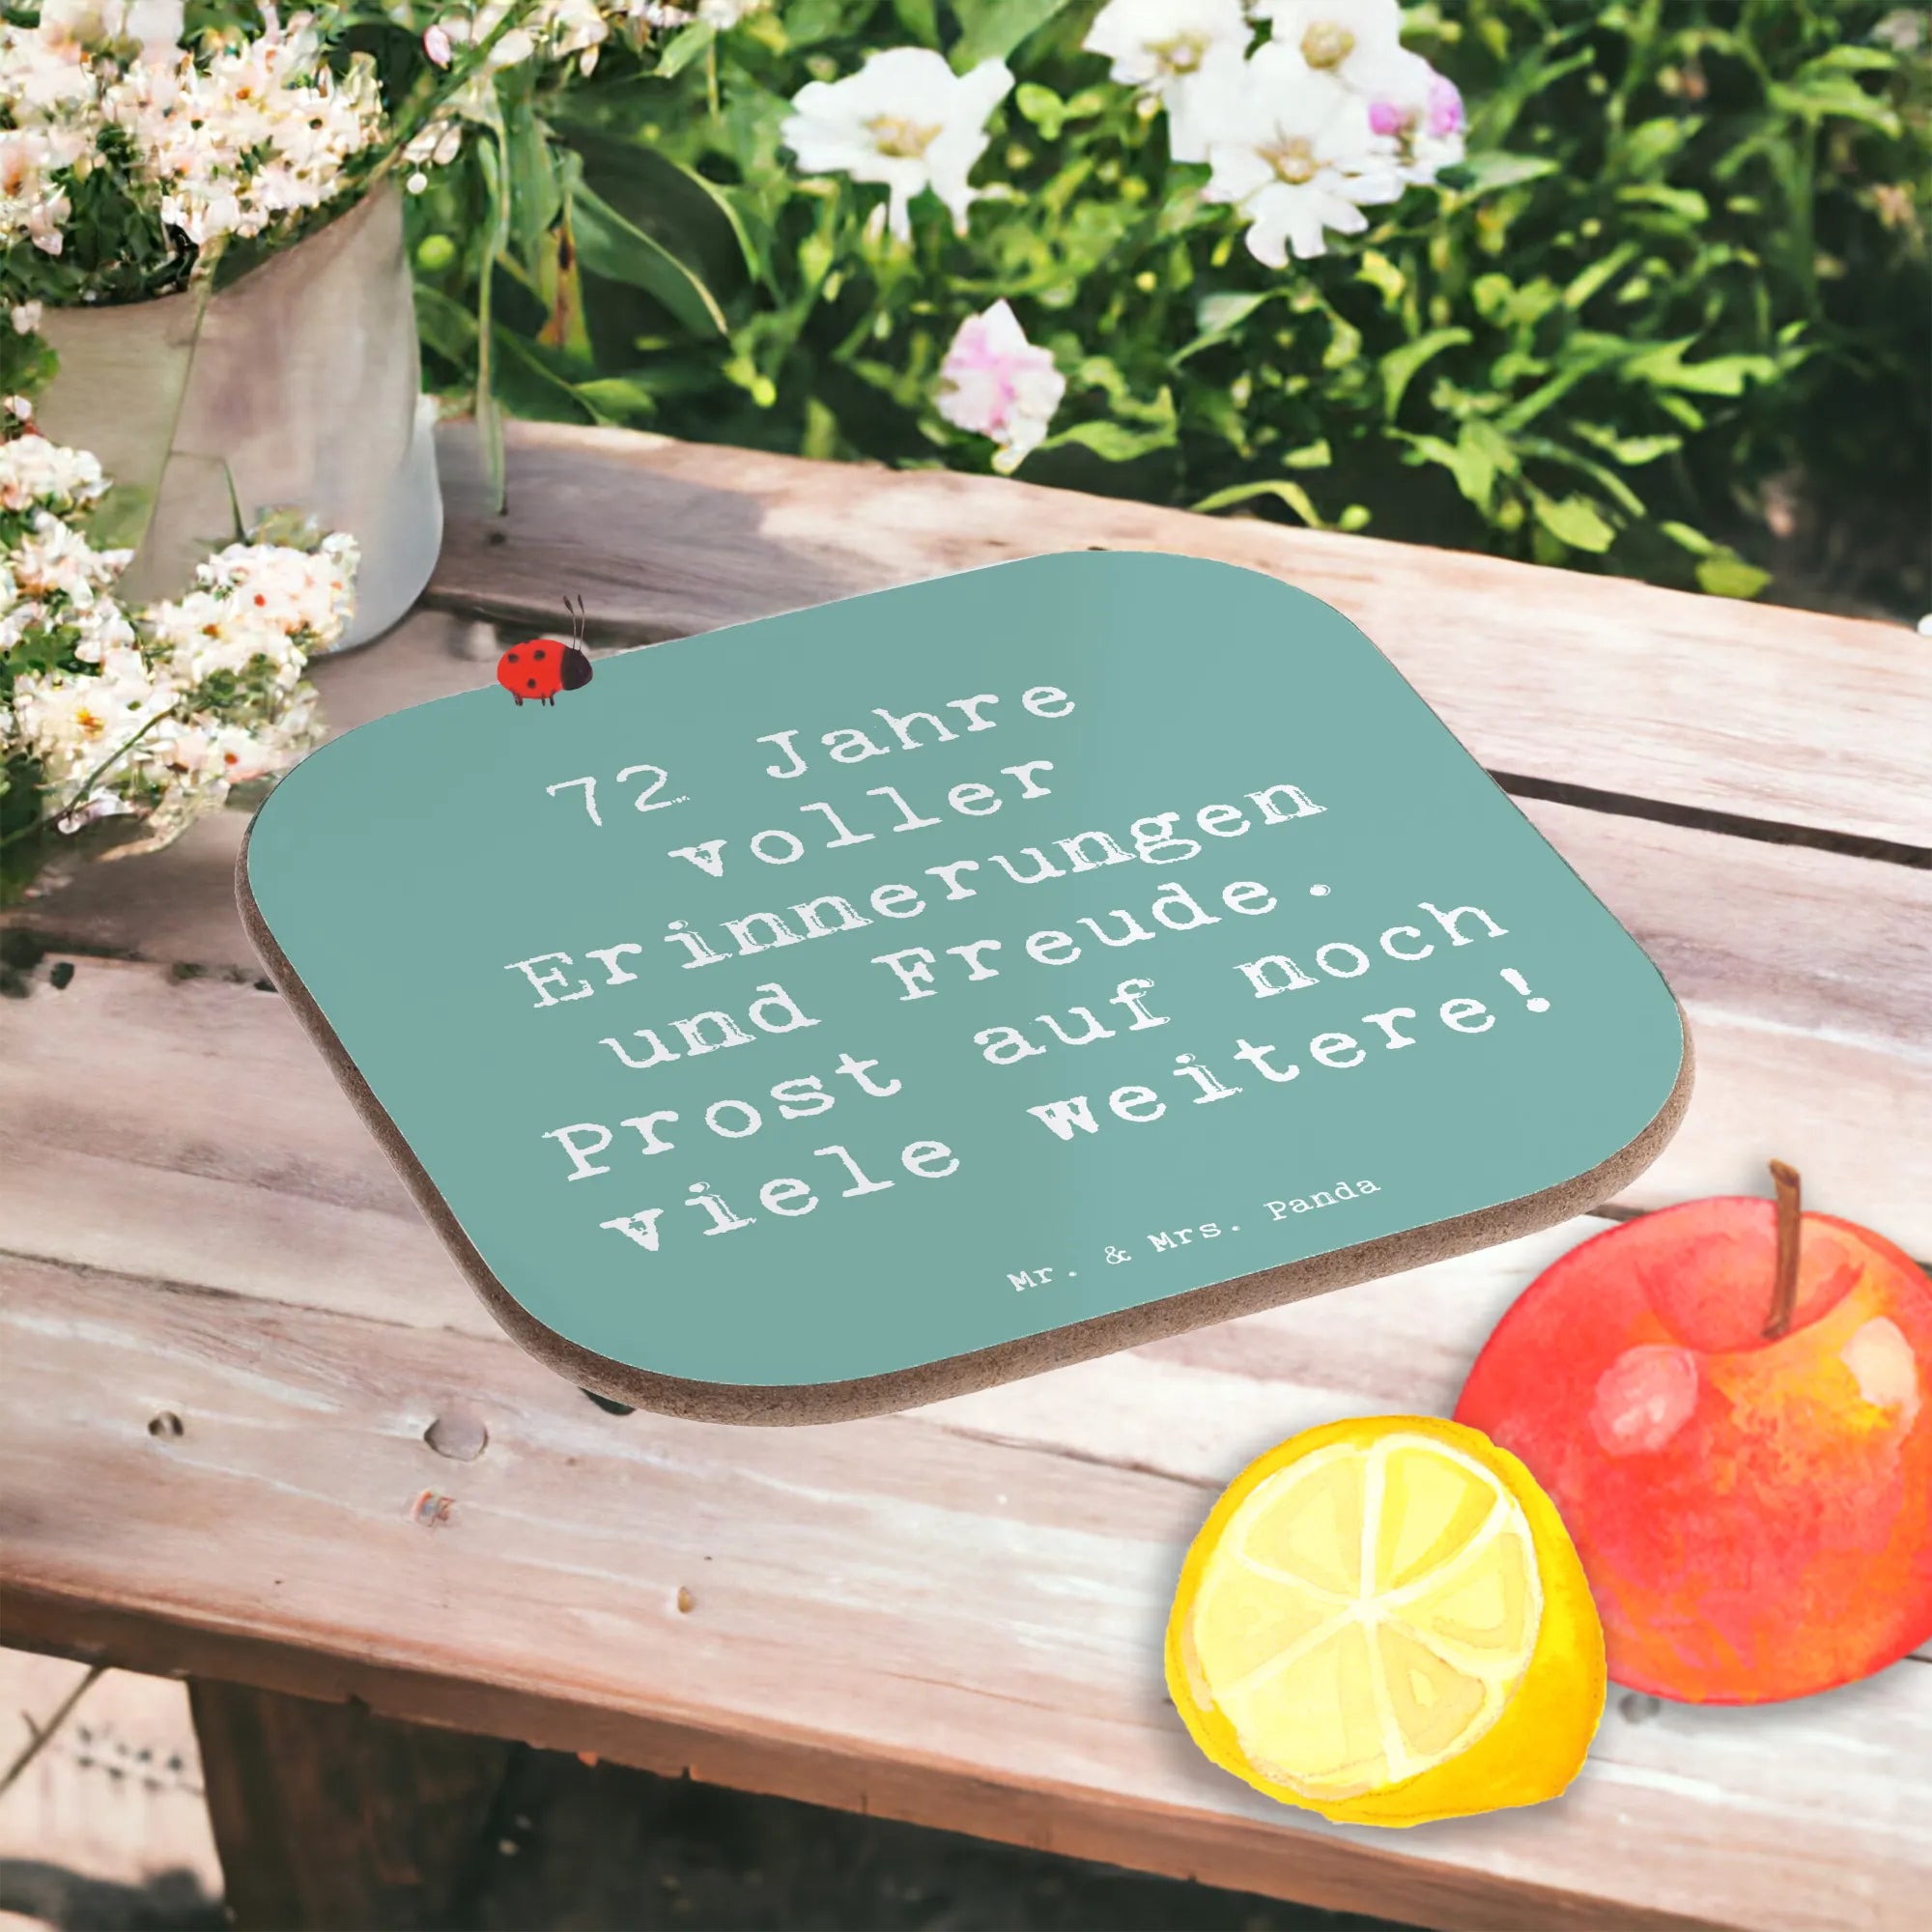 72 Jahre
voller
Erinnerungen
und Freude.
Prost auf noch
viele weitere!
Mr. & Mrs. Panda